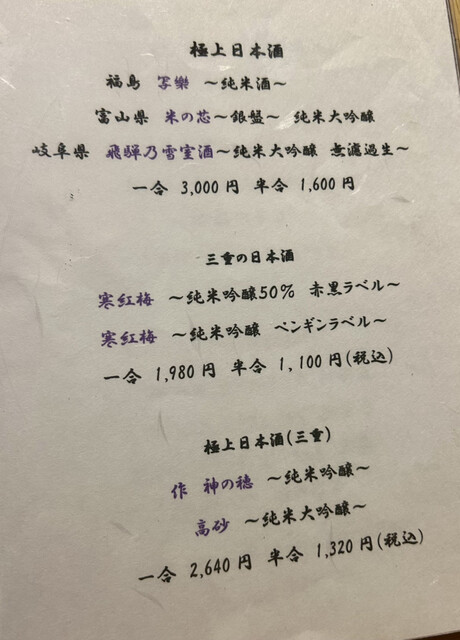 極上日本酒
福島 写樂 ～純米酒～
富山県 米の芯～銀盤～ 純米大吟醸
岐阜県 飛騨乃雪室酒～純米大吟醸 無濾過生～
一合 3,000円 半合 1,600円
三重の日本酒
寒紅梅 ～純米吟醸50% 赤黒ラベル～
寒紅梅 ～純米吟醸 ペンギンラベル～
一合 1,980円 半合 1,100円(税込)
極上日本酒(三重)
作 神の穂 ～純米吟醸～
高砂 ～純米大吟醸～
一合 2,640円 半合 1,320円(税込)